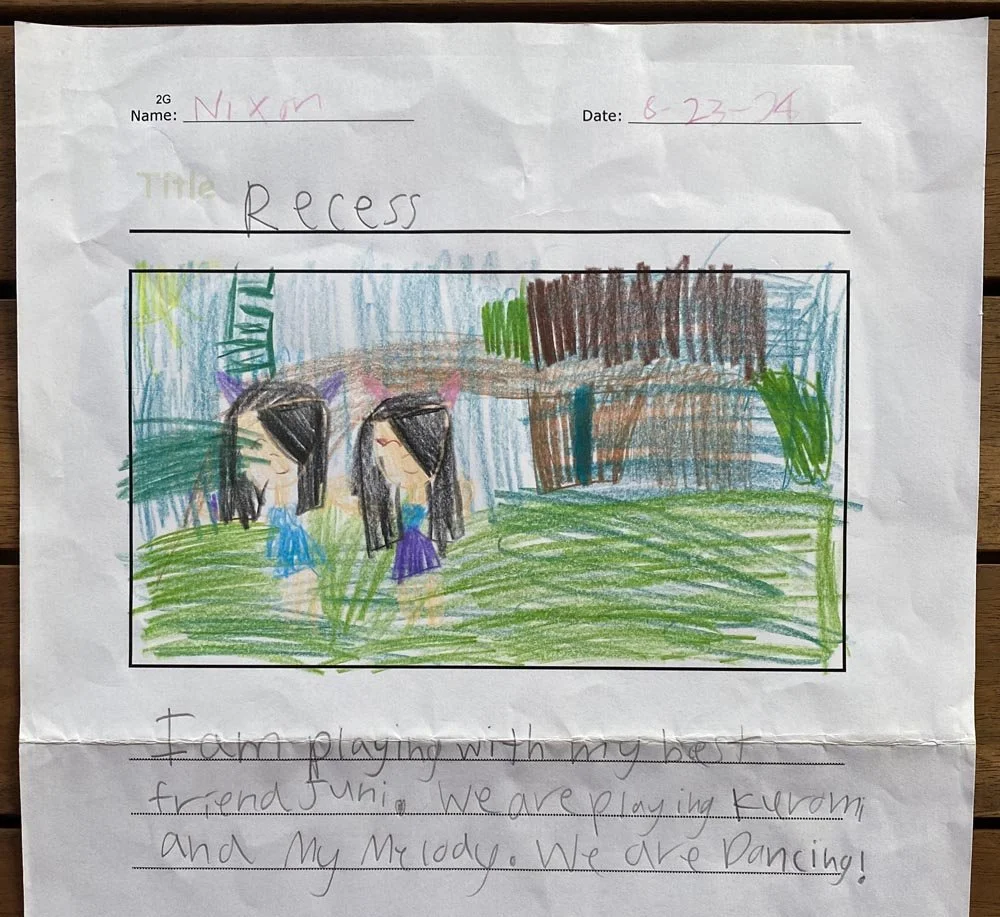 2G
Name: Nixon
Date: 8-23-24
Title Recess
I am playing with my best
friend Juni. We are playing Kuromi
and My Melody. We are Dancing!